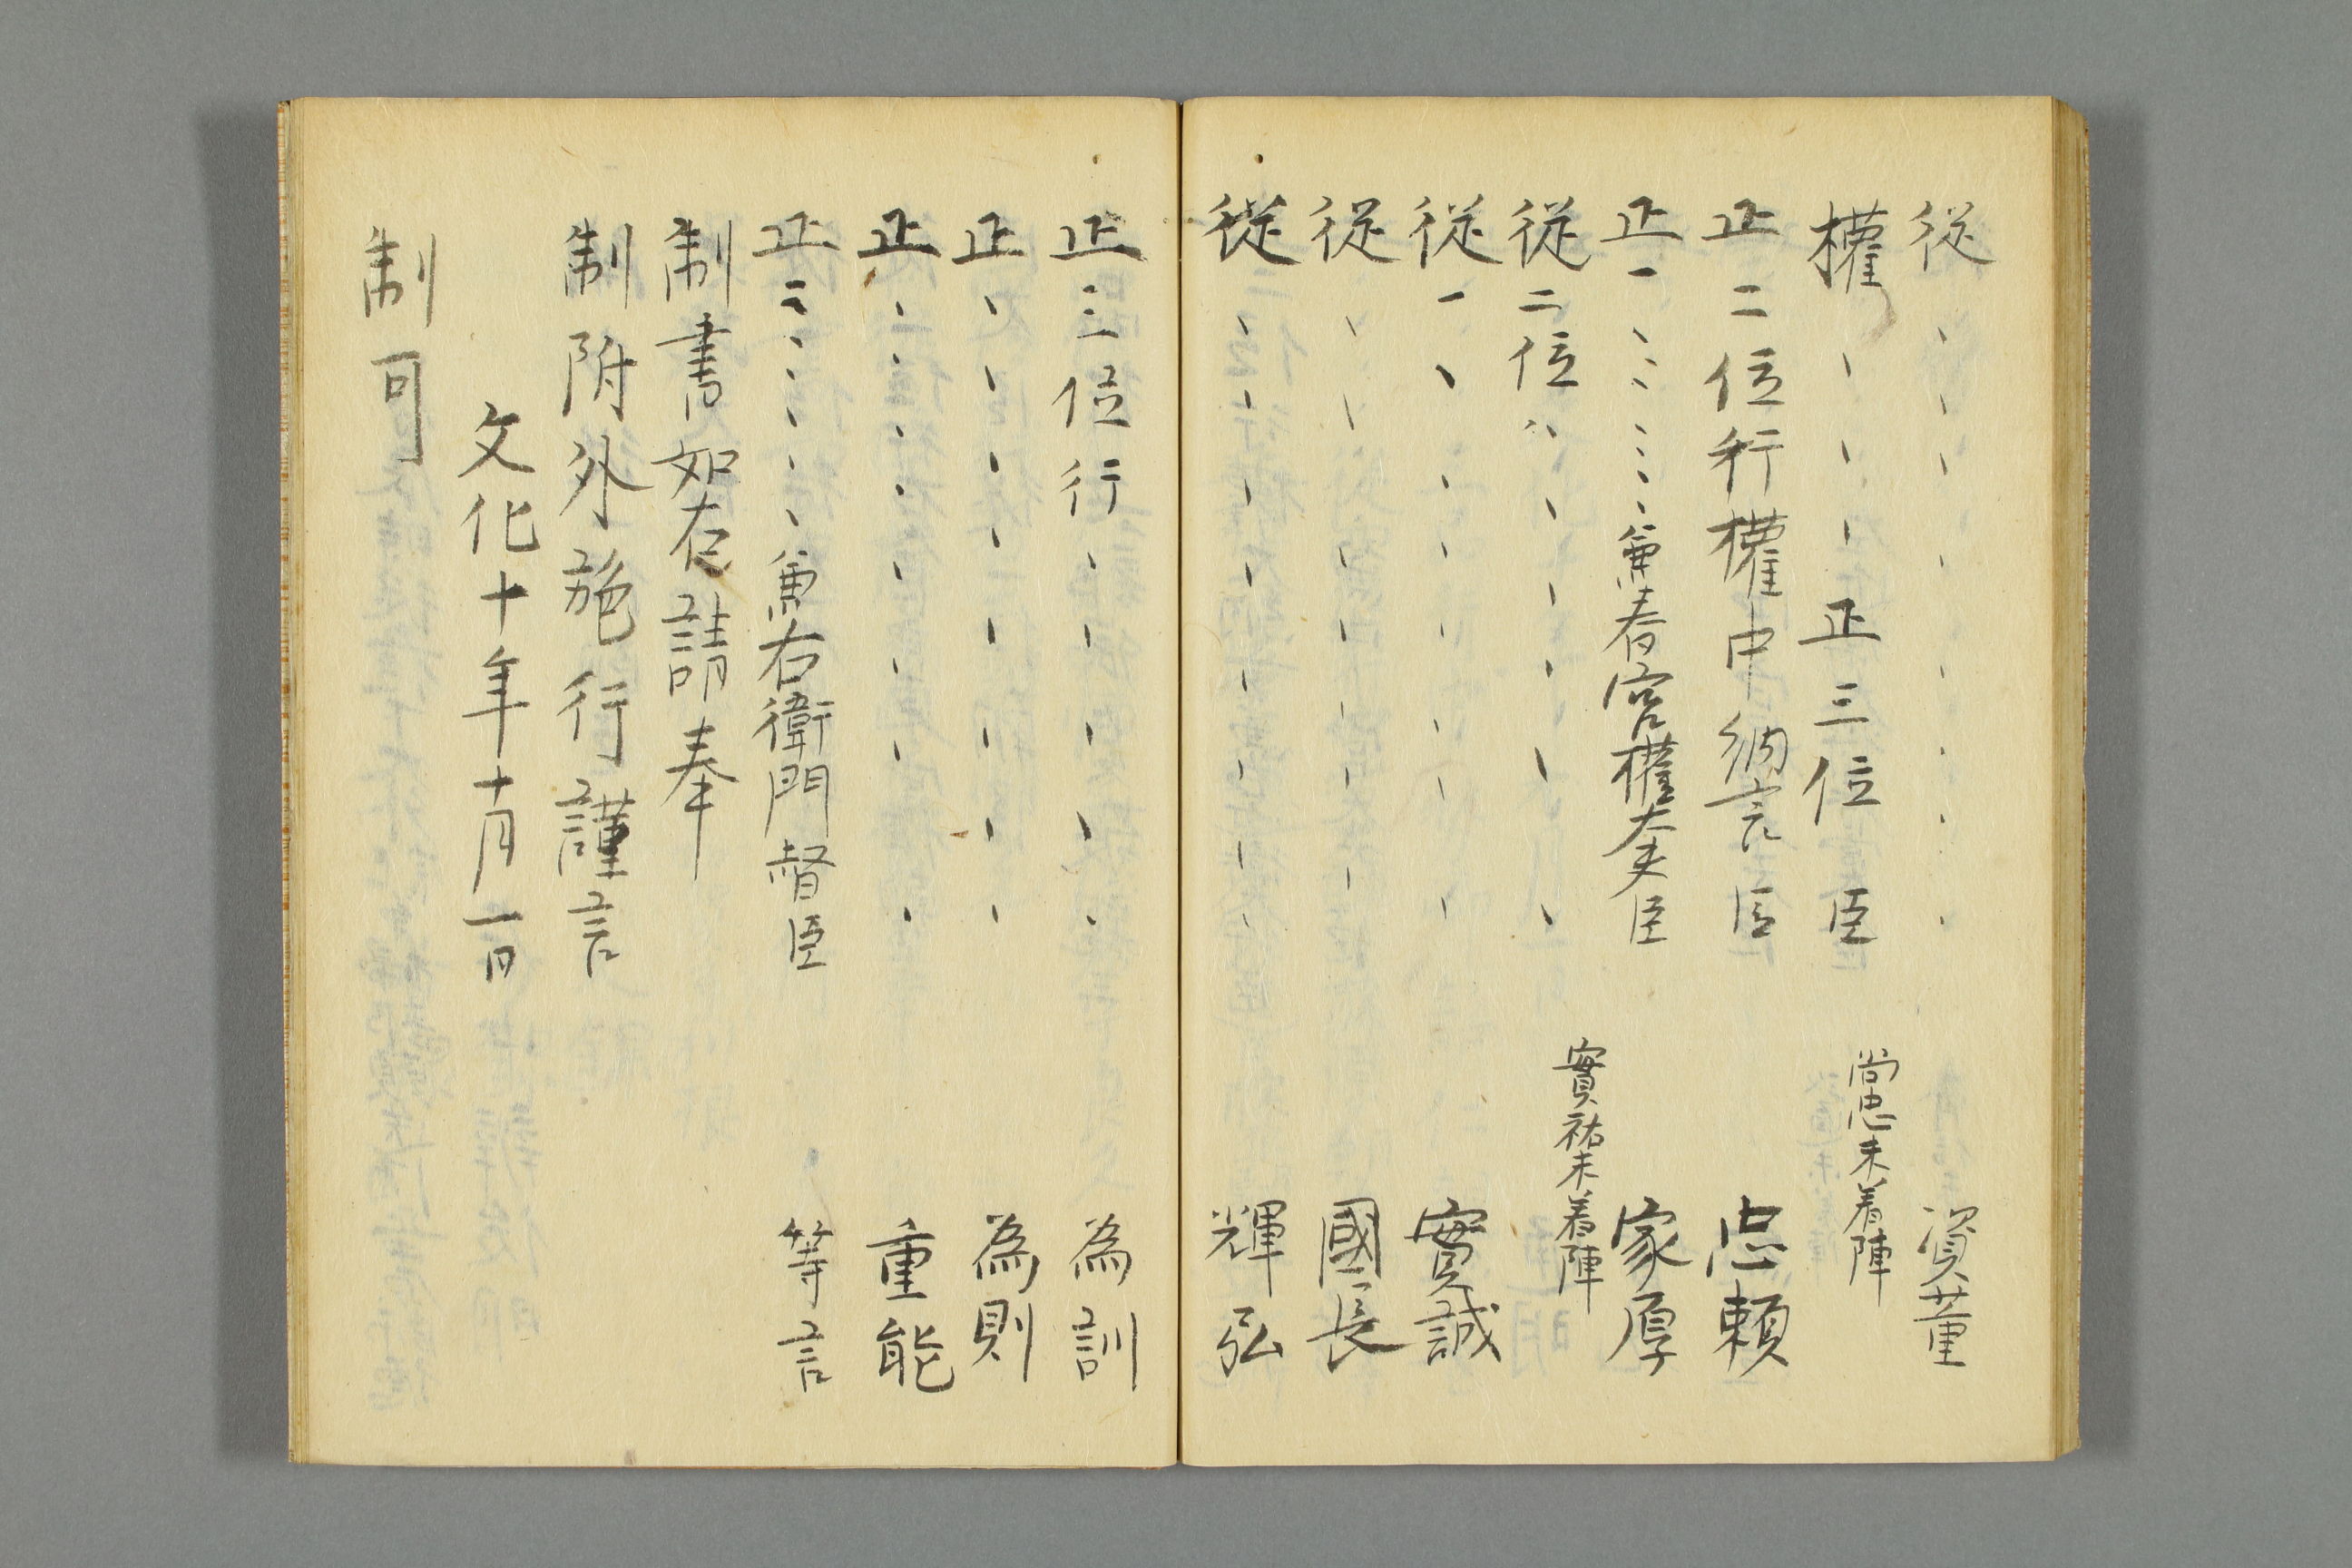 従、、、、、、、、 資董
權、、、正三位臣 尚忠未着陣
正二位行權中納言臣 忠頼
正一、、、、、、兼春宮權大夫臣 家厚
従二位、、、、、、、 實祐未着陣
従一、、、、、、、 實誠
従、、、、、、、 國長
従、、、、、、、、 輝弘
正三位行、、、、、 為訓
正、、、、、、、、 為則
正、、、、、、、、 重能
正二、、、、、兼右衛門督臣 等言
制書如右請奉
制附外施行謹言
文化十年十月一日
制可